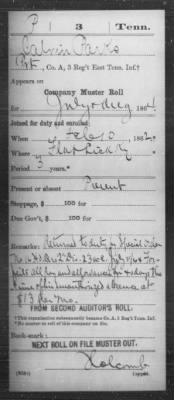 P | 3 | Tenn.
Calvin Parks
Pvt., Co. A, 3 Reg't East Tenn. Inf.†
Appears on
Company Muster Roll
for July & Aug, 1864.
Joined for duty and enrolled:
When Feb 10, 1862.*
Where Flat Lick Ky
Period 3 years.*
Present or absent Present
Stoppage, $ 100 for
Due Gov't, $ 100 for
Remarks: Returned to duty by Special Order
No. Hd. Qrs. 2 Div. 23 A.C. July
all pay and allowances for days the
time of his
$13 Per Mo.
FROM SECOND AUDITOR'S ROLL.
† This organization subsequently became Co. A, 3 Reg't Tenn. Inf.
* No muster-in roll of this company on file.
Book mark:
NEXT ROLL ON FILE MUSTER OUT.
Holcomb
Copyist.